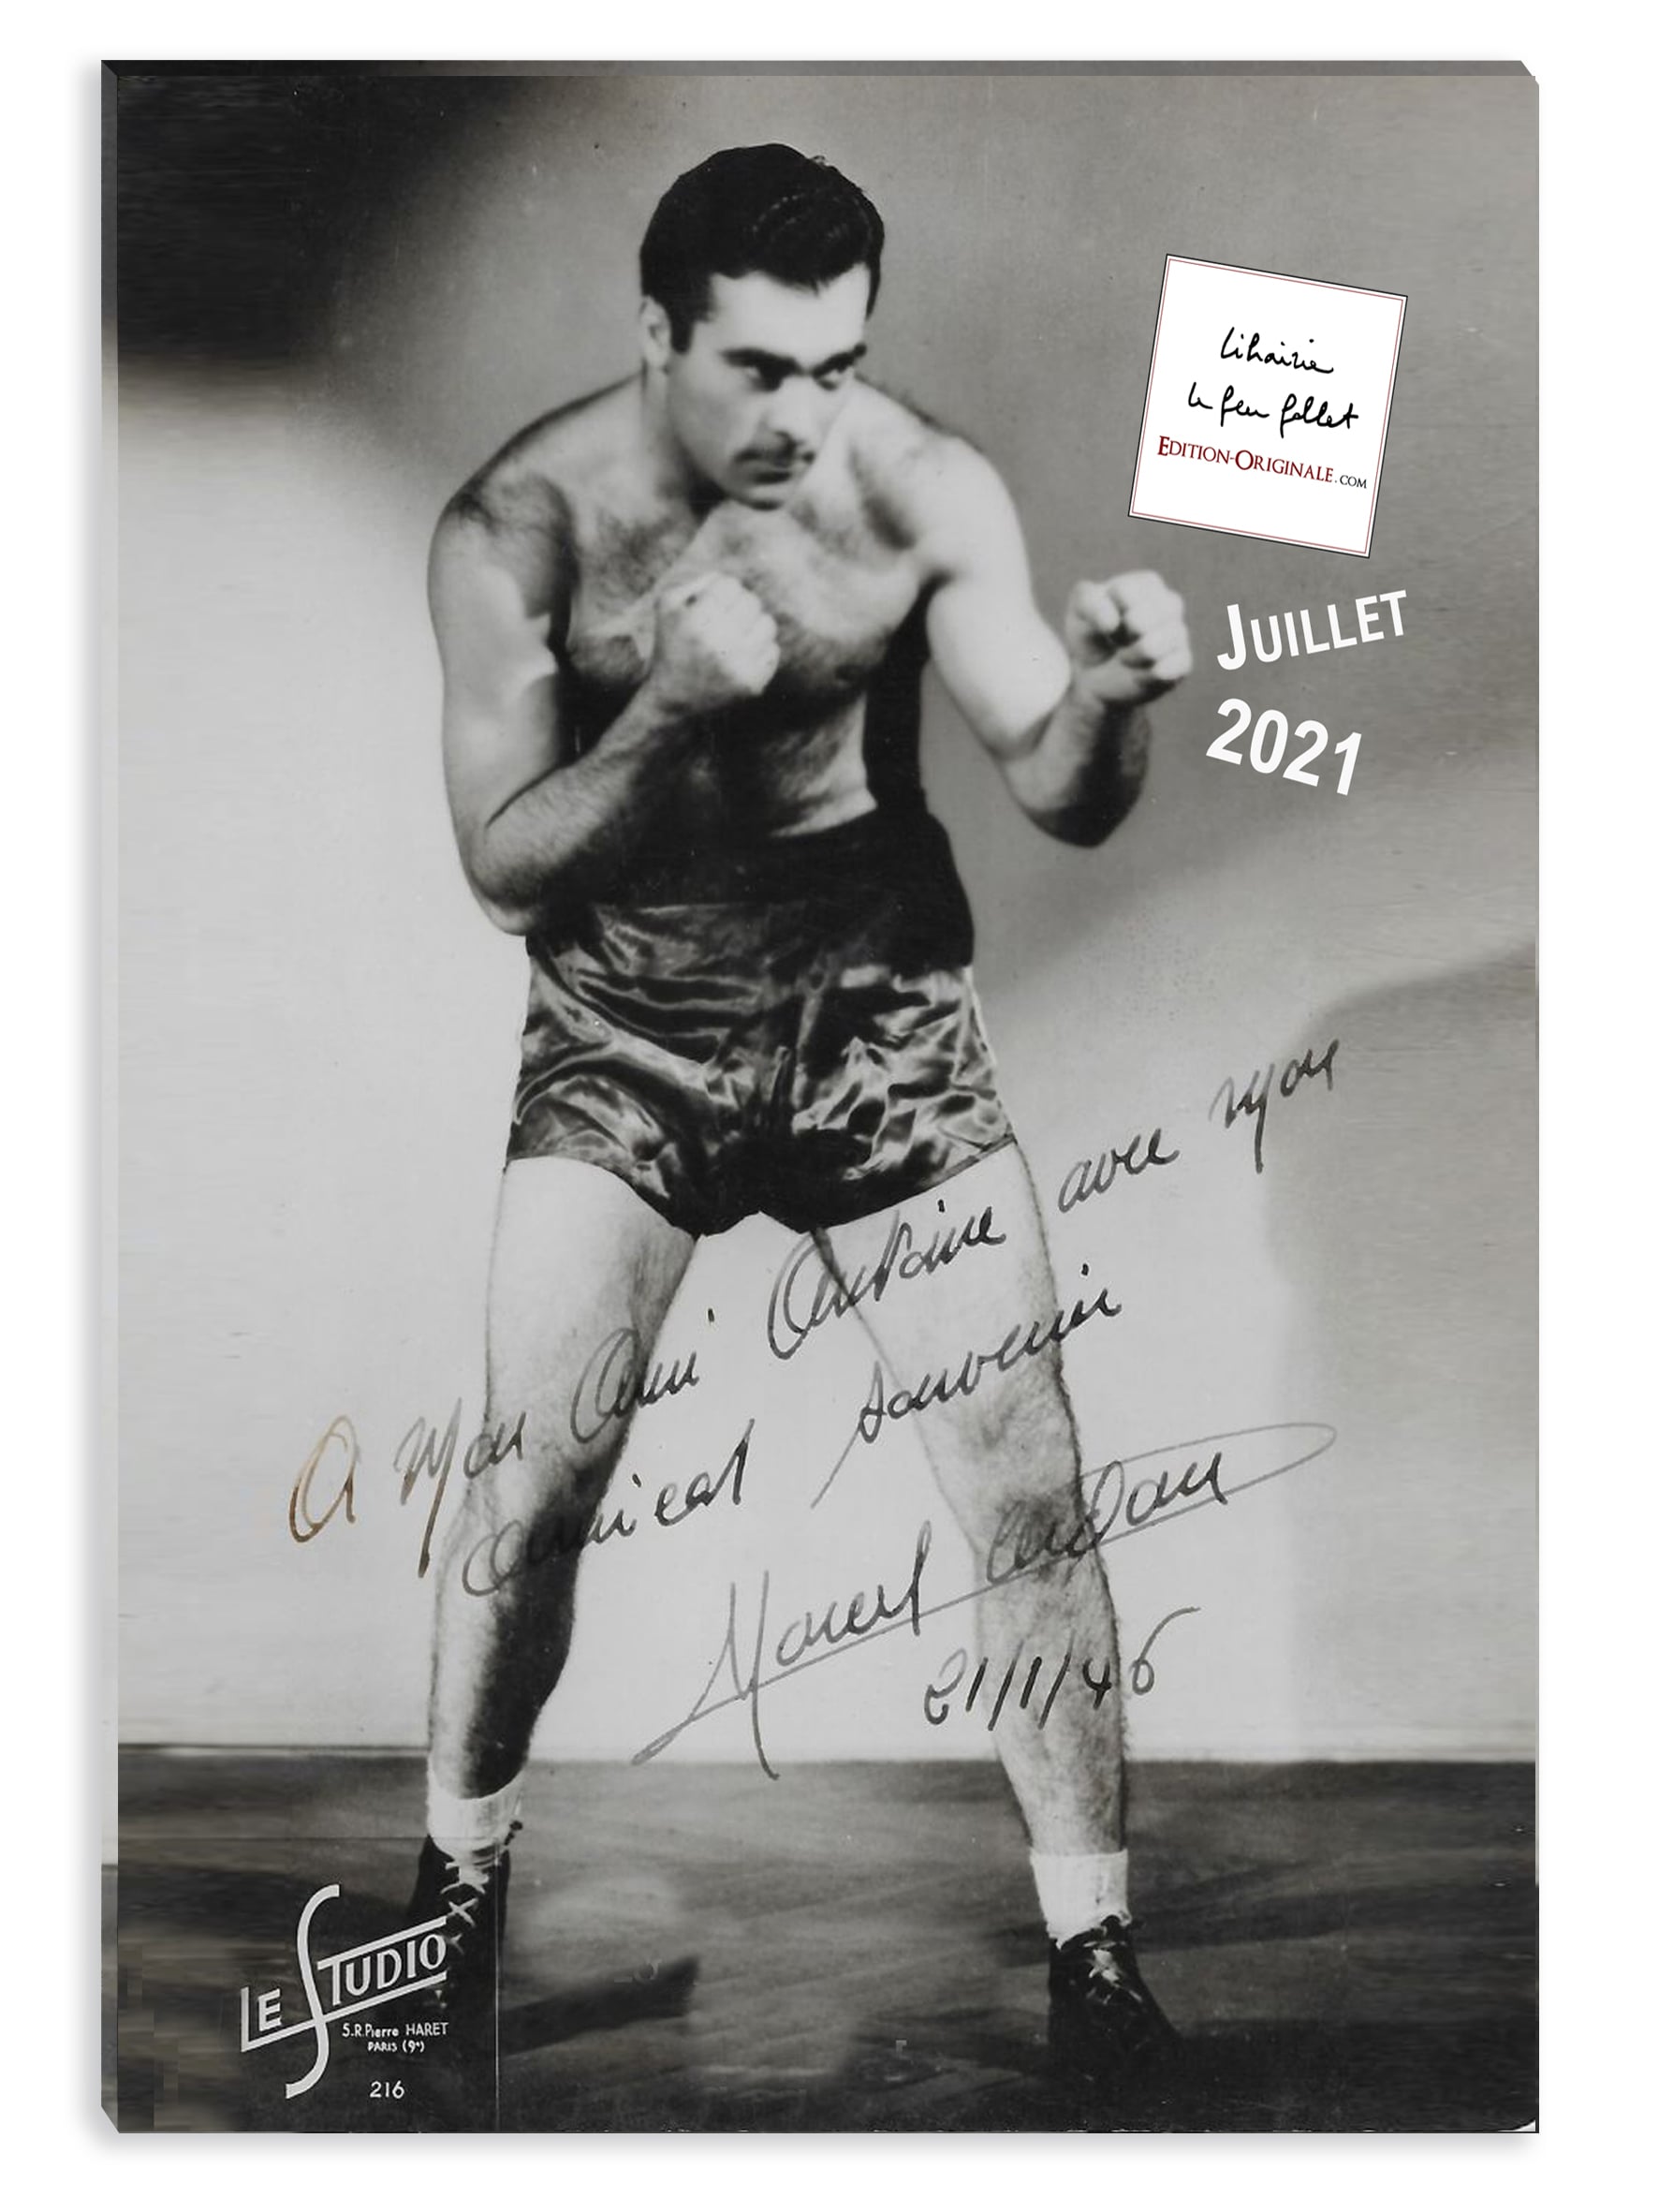 Librairie
le feu follet
EDITION-ORIGINALE.COM
JUILLET
2021
A Mon Ami Antoine avec mon
amical souvenir
Marcel Cerdan
21/1/46
LE STUDIO
5.R.Pierre HARET
PARIS (9e)
216